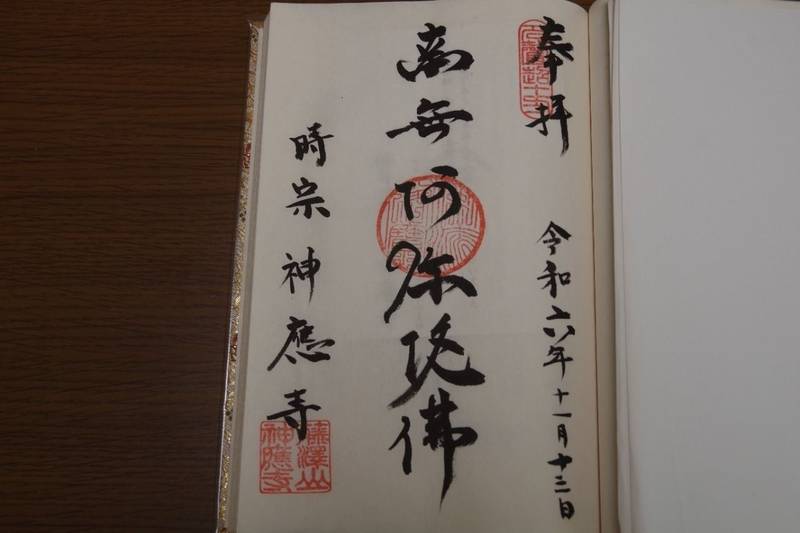 奉拝
令和六年十一月十三日
南無阿弥陀佛
時宗 神應寺
藤澤山
神應寺